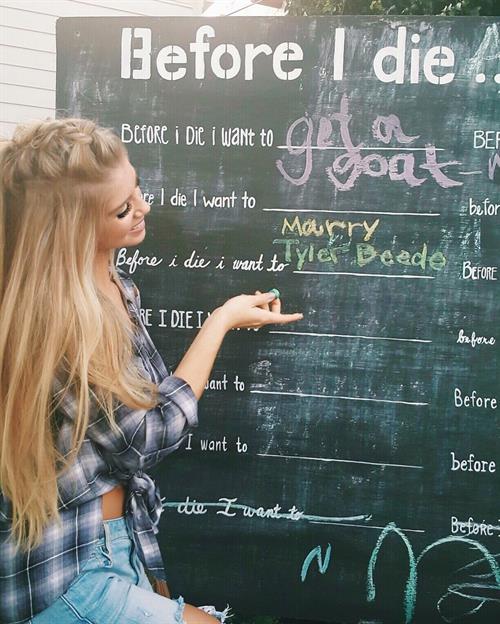 Before I die ..
BEFORE i DiE i WANT to get a goat
BEF
re I die I want to
befor
Before i die i want to Marry Tyler Beede
BEFORE
RE I DIE I
before
ant to
Before
I want to
before
die I want to
Before
N